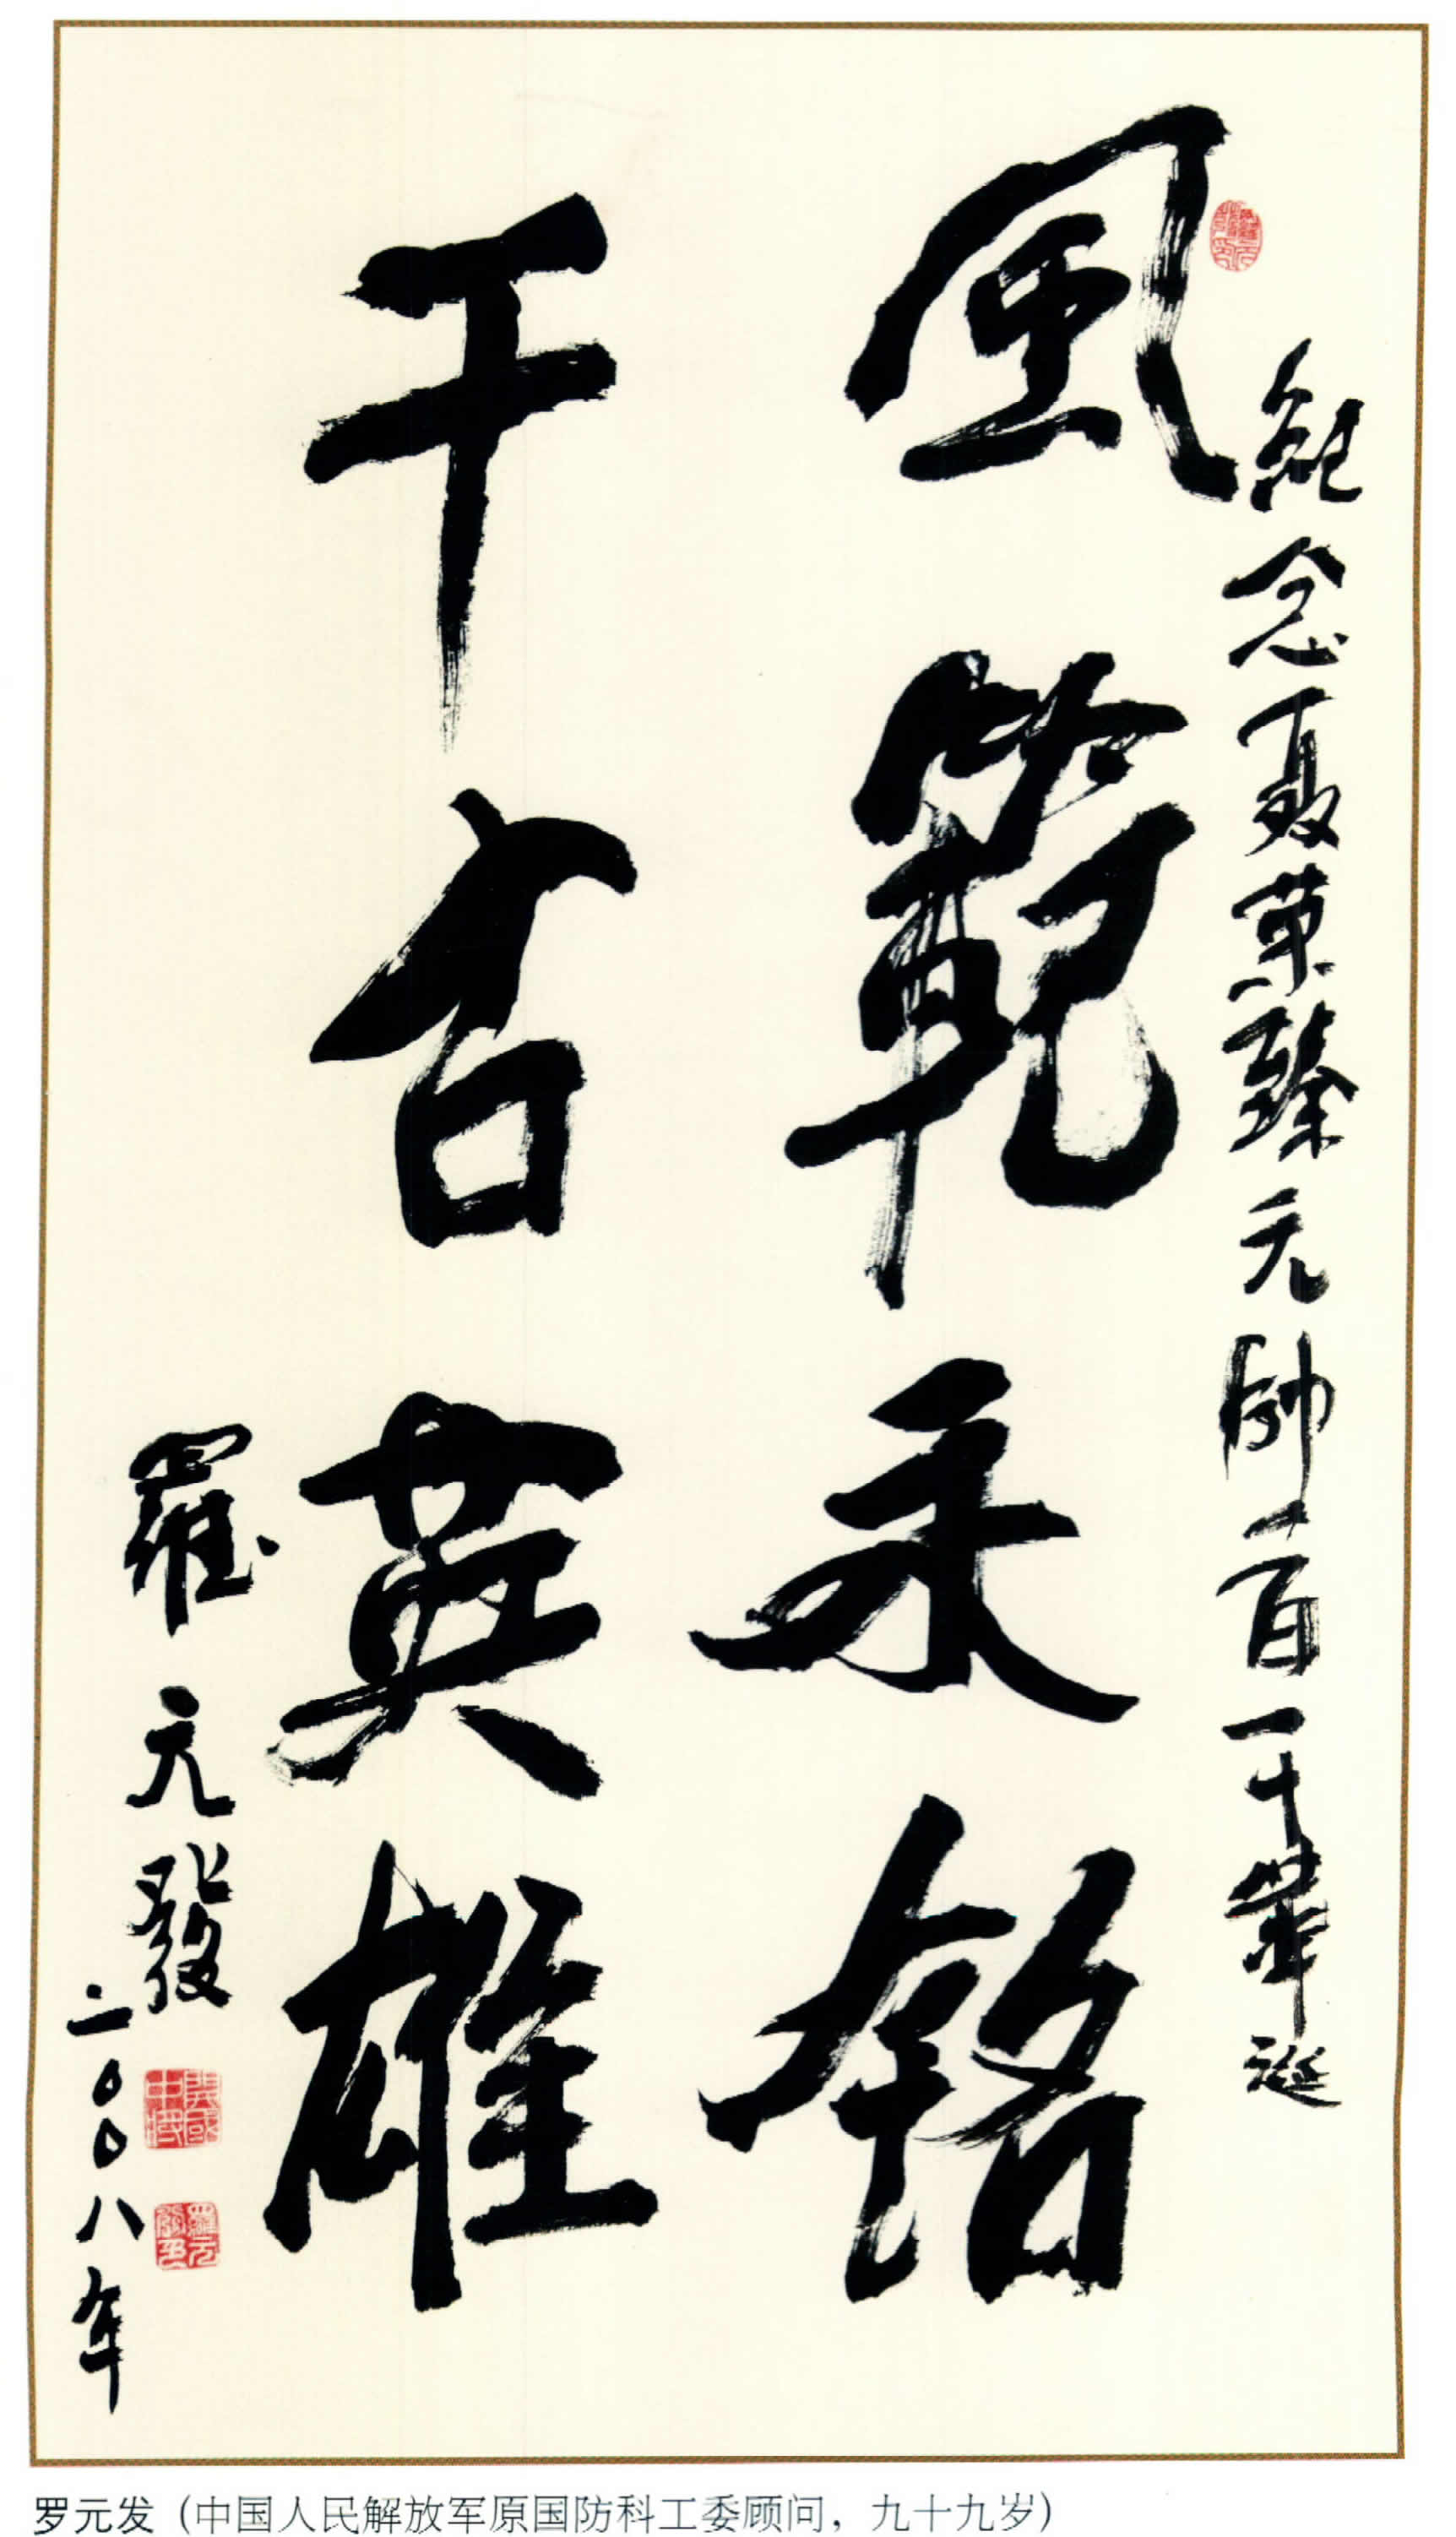 紀念聂荣臻元帥百一十華誕
風範永銘
千古英雄
羅元發
二〇〇八年
開國中將
羅元發印
罗元发（中国人民解放军原国防科工委顾问，九十九岁）